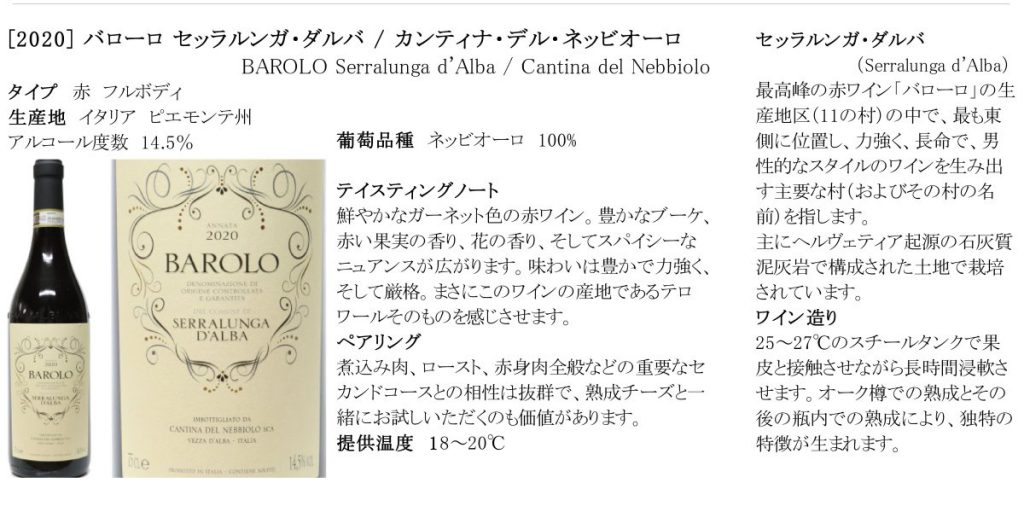 [2020] バローロ セッラルンガ・ダルバ / カンティナ・デル・ネッビオーロ
BAROLO Serralunga d'Alba / Cantina del Nebbiolo
タイプ 赤 フルボディ
生産地 イタリア ピエモンテ州
アルコール度数 14.5%
葡萄品種 ネッビオーロ 100%
テイスティングノート
鮮やかなガーネット色の赤ワイン。豊かなブーケ、
赤い果実の香り、花の香り、そしてスパイシーな
ニュアンスが広がります。味わいは豊かで力強く、
そして厳格。まさにこのワインの産地であるテロ
ワールそのものを感じさせます。
ペアリング
煮込み肉、ロースト、赤身肉全般などの重要なセ
カンドコースとの相性は抜群で、熟成チーズと一
緒にお試しいただくのも価値があります。
提供温度 18～20℃
セッラルンガ・ダルバ
(Serralunga d'Alba)
最高峰の赤ワイン「バローロ」の生
産地区(11の村)の中で、最も東
側に位置し、力強く、長命で、男
性的なスタイルのワインを生み出
す主要な村(およびその村の名
前)を指します。
主にヘルヴェティア起源の石灰質
泥灰岩で構成された土地で栽培
されています。
ワイン造り
25～27℃のスチールタンクで果
皮と接触させながら長時間浸軟さ
せます。オーク樽での熟成とその
後の瓶内での熟成により、独特の
特徴が生まれます。
2020
BAROLO
SERRALUNGA
D'ALBA
ANNATA
2020
BAROLO
DENOMINAZIONE DI
ORIGINE CONTROLLATA
E GARANTITA
DEL COMUNE DI
SERRALUNGA
D'ALBA
IMBOTTIGLIATO DA
CANTINA DEL NEBBIOLO SCA
VEZZA D'ALBA - ITALIA
75 cl. e
14,5% vol.
PRODOTTO IN ITALIA - CONTIENE SOLFITI